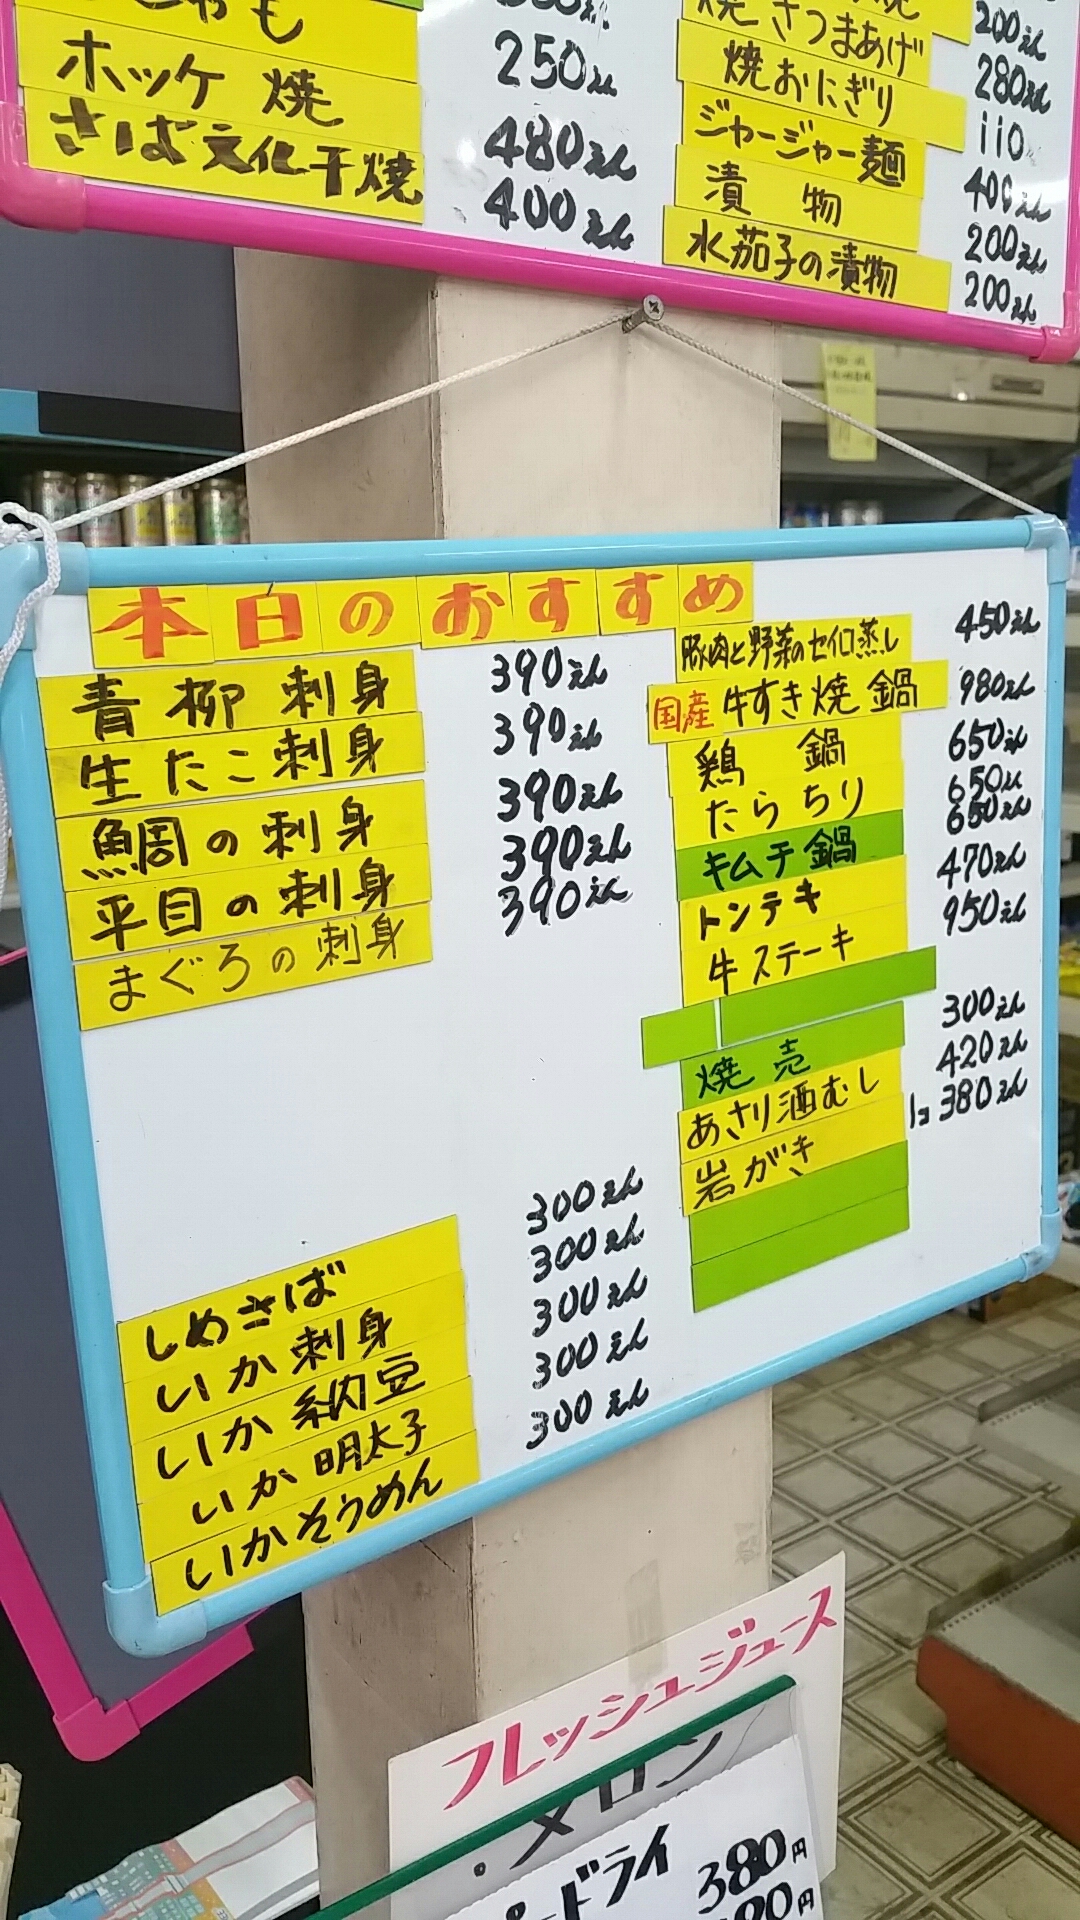 ホッケ焼 250えん
さば文化干焼 480えん
400えん
焼さつまあげ 200えん
焼おにぎり 280えん
ジャージャー麺 110
漬物 400えん
水茄子の漬物 200えん
200えん
本日のおすすめ
青柳刺身 390えん
生たこ刺身 390えん
鯛の刺身 390えん
平目の刺身 390えん
まぐろの刺身 390えん
しめさば 300えん
いか刺身 300えん
いか納豆 300えん
いか明太子 300えん
いかそうめん 300えん
豚肉と野菜のセイロ蒸し 450えん
国産牛すき焼鍋 980えん
鶏鍋 650えん
たらちり 650えん
キムチ鍋 650えん
トンテキ 470えん
牛ステーキ 950えん
焼売 300えん
あさり酒むし 420えん
岩がき 1コ380えん
フレッシュジュース
・メロン
ドライ 380円